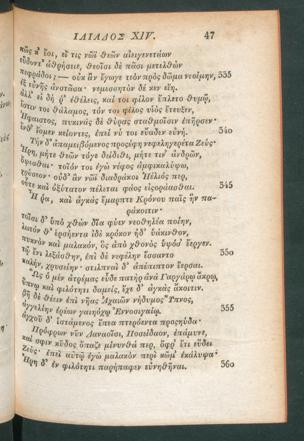 ΙΛΙΑΔΟΣ XIV. 47
πῶς κ' ἔοι, εἴ τις νῶϊ θεῶν αἰειγενετάων
εὕδοντ' ἀθρήσειε, θεοῖσι δὲ πᾶσι μετελθὼν
πεφράδοι; — οὐκ ἂν ἔγωγε τεὸν πρὸς δῶμα νεοίμην, 335
ἐξ εὐνῆς ἀνστᾶσα· νεμεσσητὸν δέ κεν εἴη.
ἀλλ' εἰ δή ῥ' ἐθέλεις, καί τοι φίλον ἔπλετο θυμῷ,
ἔστιν τοι θάλαμος, τόν τοι φίλος υἱὸς ἔτευξεν,
Ἥφαιστος, πυκινὰς δὲ θύρας σταθμοῖσιν ἐπῆρσεν·
ἔνθ' ἴομεν κείοντες, ἐπεί νύ τοι εὔαδεν εὐνή. 340
Τὴν δ' ἀπαμειβόμενος προσέφη νεφεληγερέτα Ζεύς·
Ἥρη, μήτε θεῶν τόγε δείδιθι, μήτε τιν' ἀνδρῶν,
ὄψεσθαι· τοῖόν τοι ἐγὼ νέφος ἀμφικαλύψω,
χρύσεον· οὐδ' ἂν νῶϊ διαδράκοι Ἠέλιός περ,
οὗτε καὶ ὀξύτατον πέλεται φάος εἰσοράασθαι. 345
Ἦ ῥα, καὶ ἀγκὰς ἔμαρπτε Κρόνου παῖς ἣν πα-
ράκοιτιν·
τοῖσι δ' ὑπὸ χθὼν δῖα φύεν νεοθηλέα ποίην,
λωτόν θ' ἑρσήεντα ἰδὲ κρόκον ἠδ' ὑάκινθον,
πυκνὸν καὶ μαλακόν, ὃς ἀπὸ χθονὸς ὑψόσ' ἔεργεν.
τῷ ἔνι λεξάσθην, ἐπὶ δὲ νεφέλην ἕσσαντο 350
καλήν, χρυσείην· στιλπναὶ δ' ἀπέπιπτον ἔερσαι.
Ὣς ὁ μὲν ἀτρέμας εὗδε πατὴρ ἀνὰ Γαργάρῳ ἄκρῳ,
ὕπνῳ καὶ φιλότητι δαμείς, ἔχε δ' ἀγκὰς ἄκοιτιν.
βῆ δὲ θέειν ἐπὶ νῆας Ἀχαιῶν νήδυμος Ὕπνος,
ἀγγελίην ἐρέων γαιηόχῳ Ἐννοσιγαίῳ. 355
ἀγχοῦ δ' ἱστάμενος ἔπεα πτερόεντα προσηύδα·
Πρόφρων νῦν Δαναοῖσι, Ποσείδαον, ἐπάμυνε,
καί σφιν κῦδος ὄπαζε μίνυνθά περ, ὄφρ' ἔτι εὕδει
Ζεύς· ἐπεὶ αὐτῷ ἐγὼ μαλακὸν περὶ κῶμ' ἐκάλυψα·
Ἥρη δ' ἐν φιλότητι παρήπαφεν εὐνηθῆναι. 360